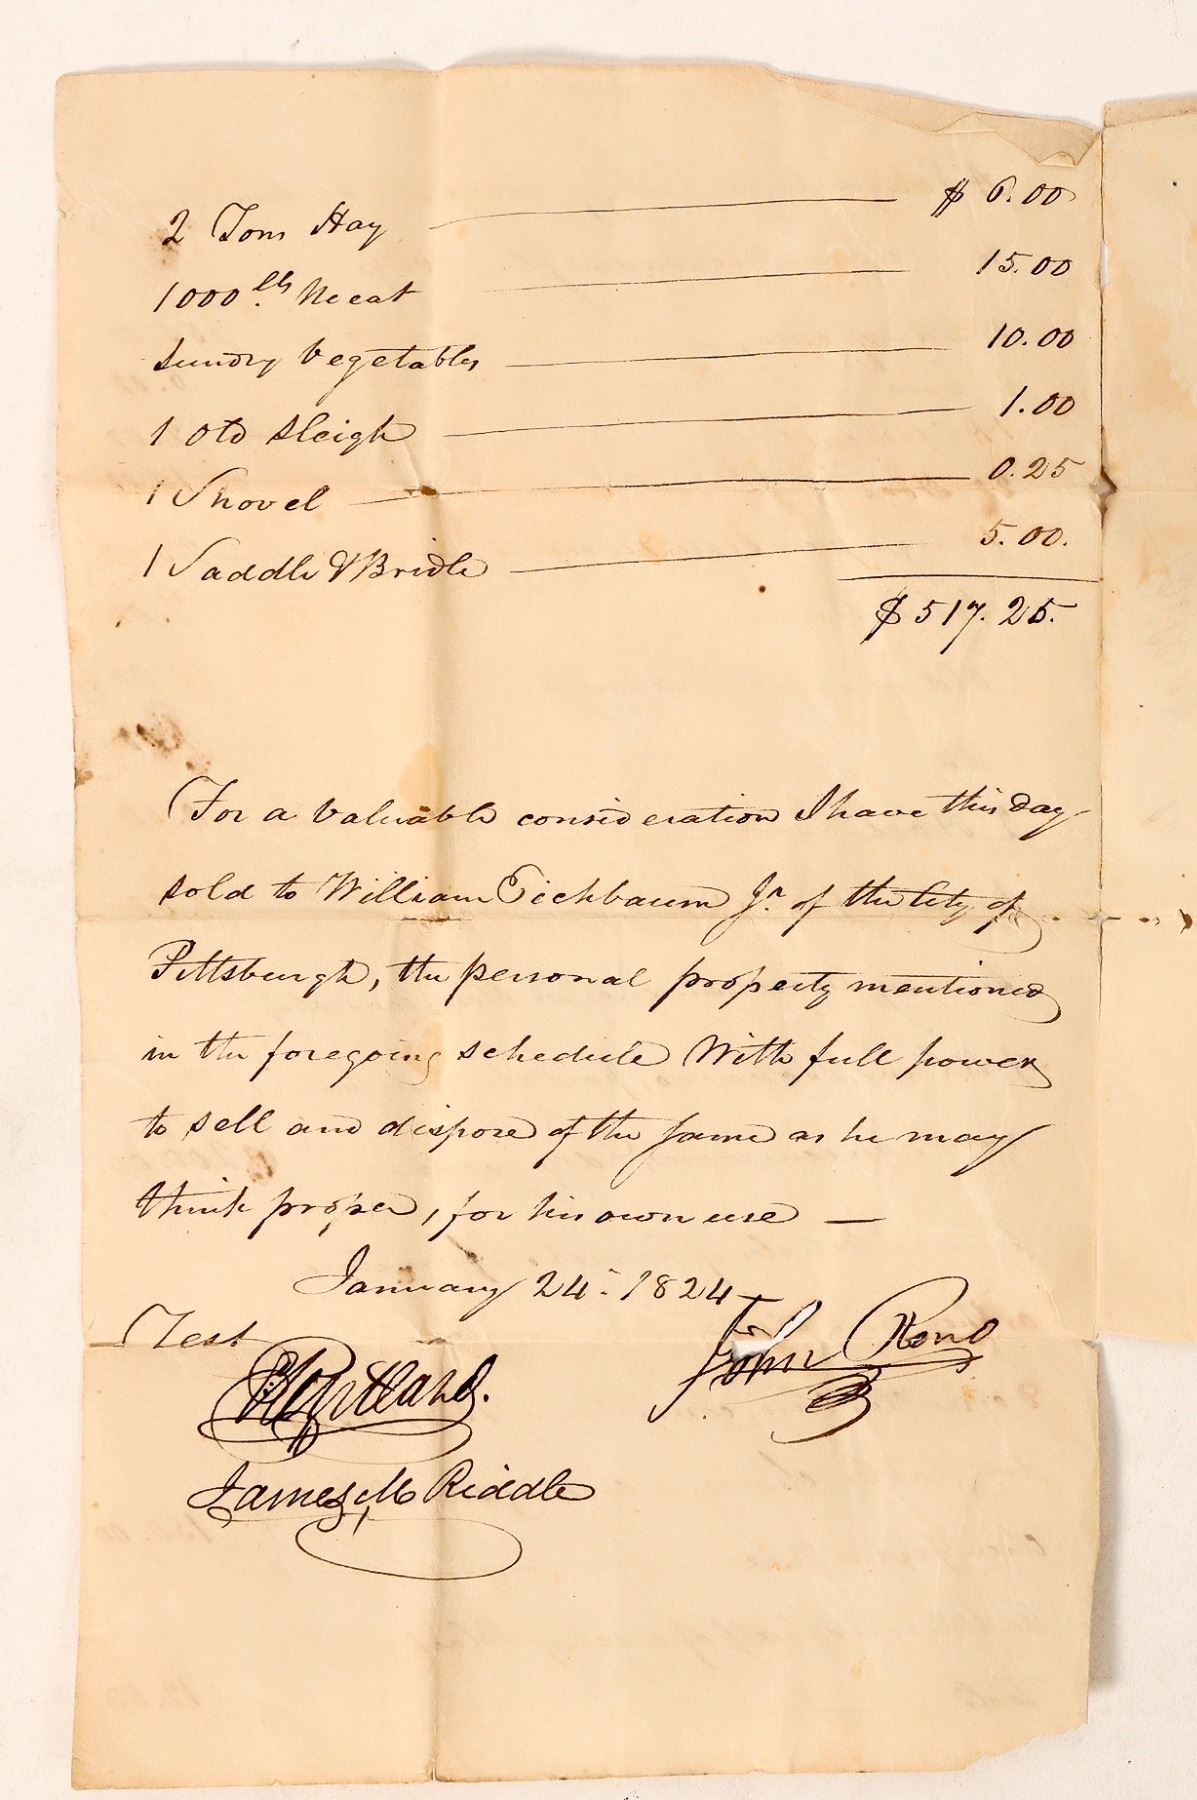 2 Tons Hay $ 6.00
1000 lbs Meat 15.00
Sundry Vegetables 10.00
1 Old Sleigh 1.00
1 Shovel 0.25
1 Saddle & Bridle 5.00.
$517.25.
For a valuable consideration I have this day
sold to William Eichbaum Jr. of the City of
Pittsburgh, the personal property mentioned
in the foregoing schedule With full power
to sell and dispose of the same as he may
think proper, for his own use —
January 24. 1824
Test
John Reno
James M Riddle